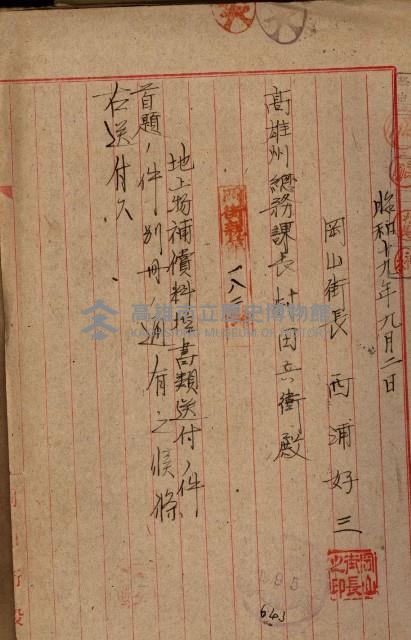 昭和十九年九月二日
岡山街長 西浦好三
岡山街長之印
高雄州總務課長村田兵衛殿
地上物補償料 書類送付ノ件
首題ノ件別冊ノ通有之候條
右送付ス
高雄市立歷史博物館
643